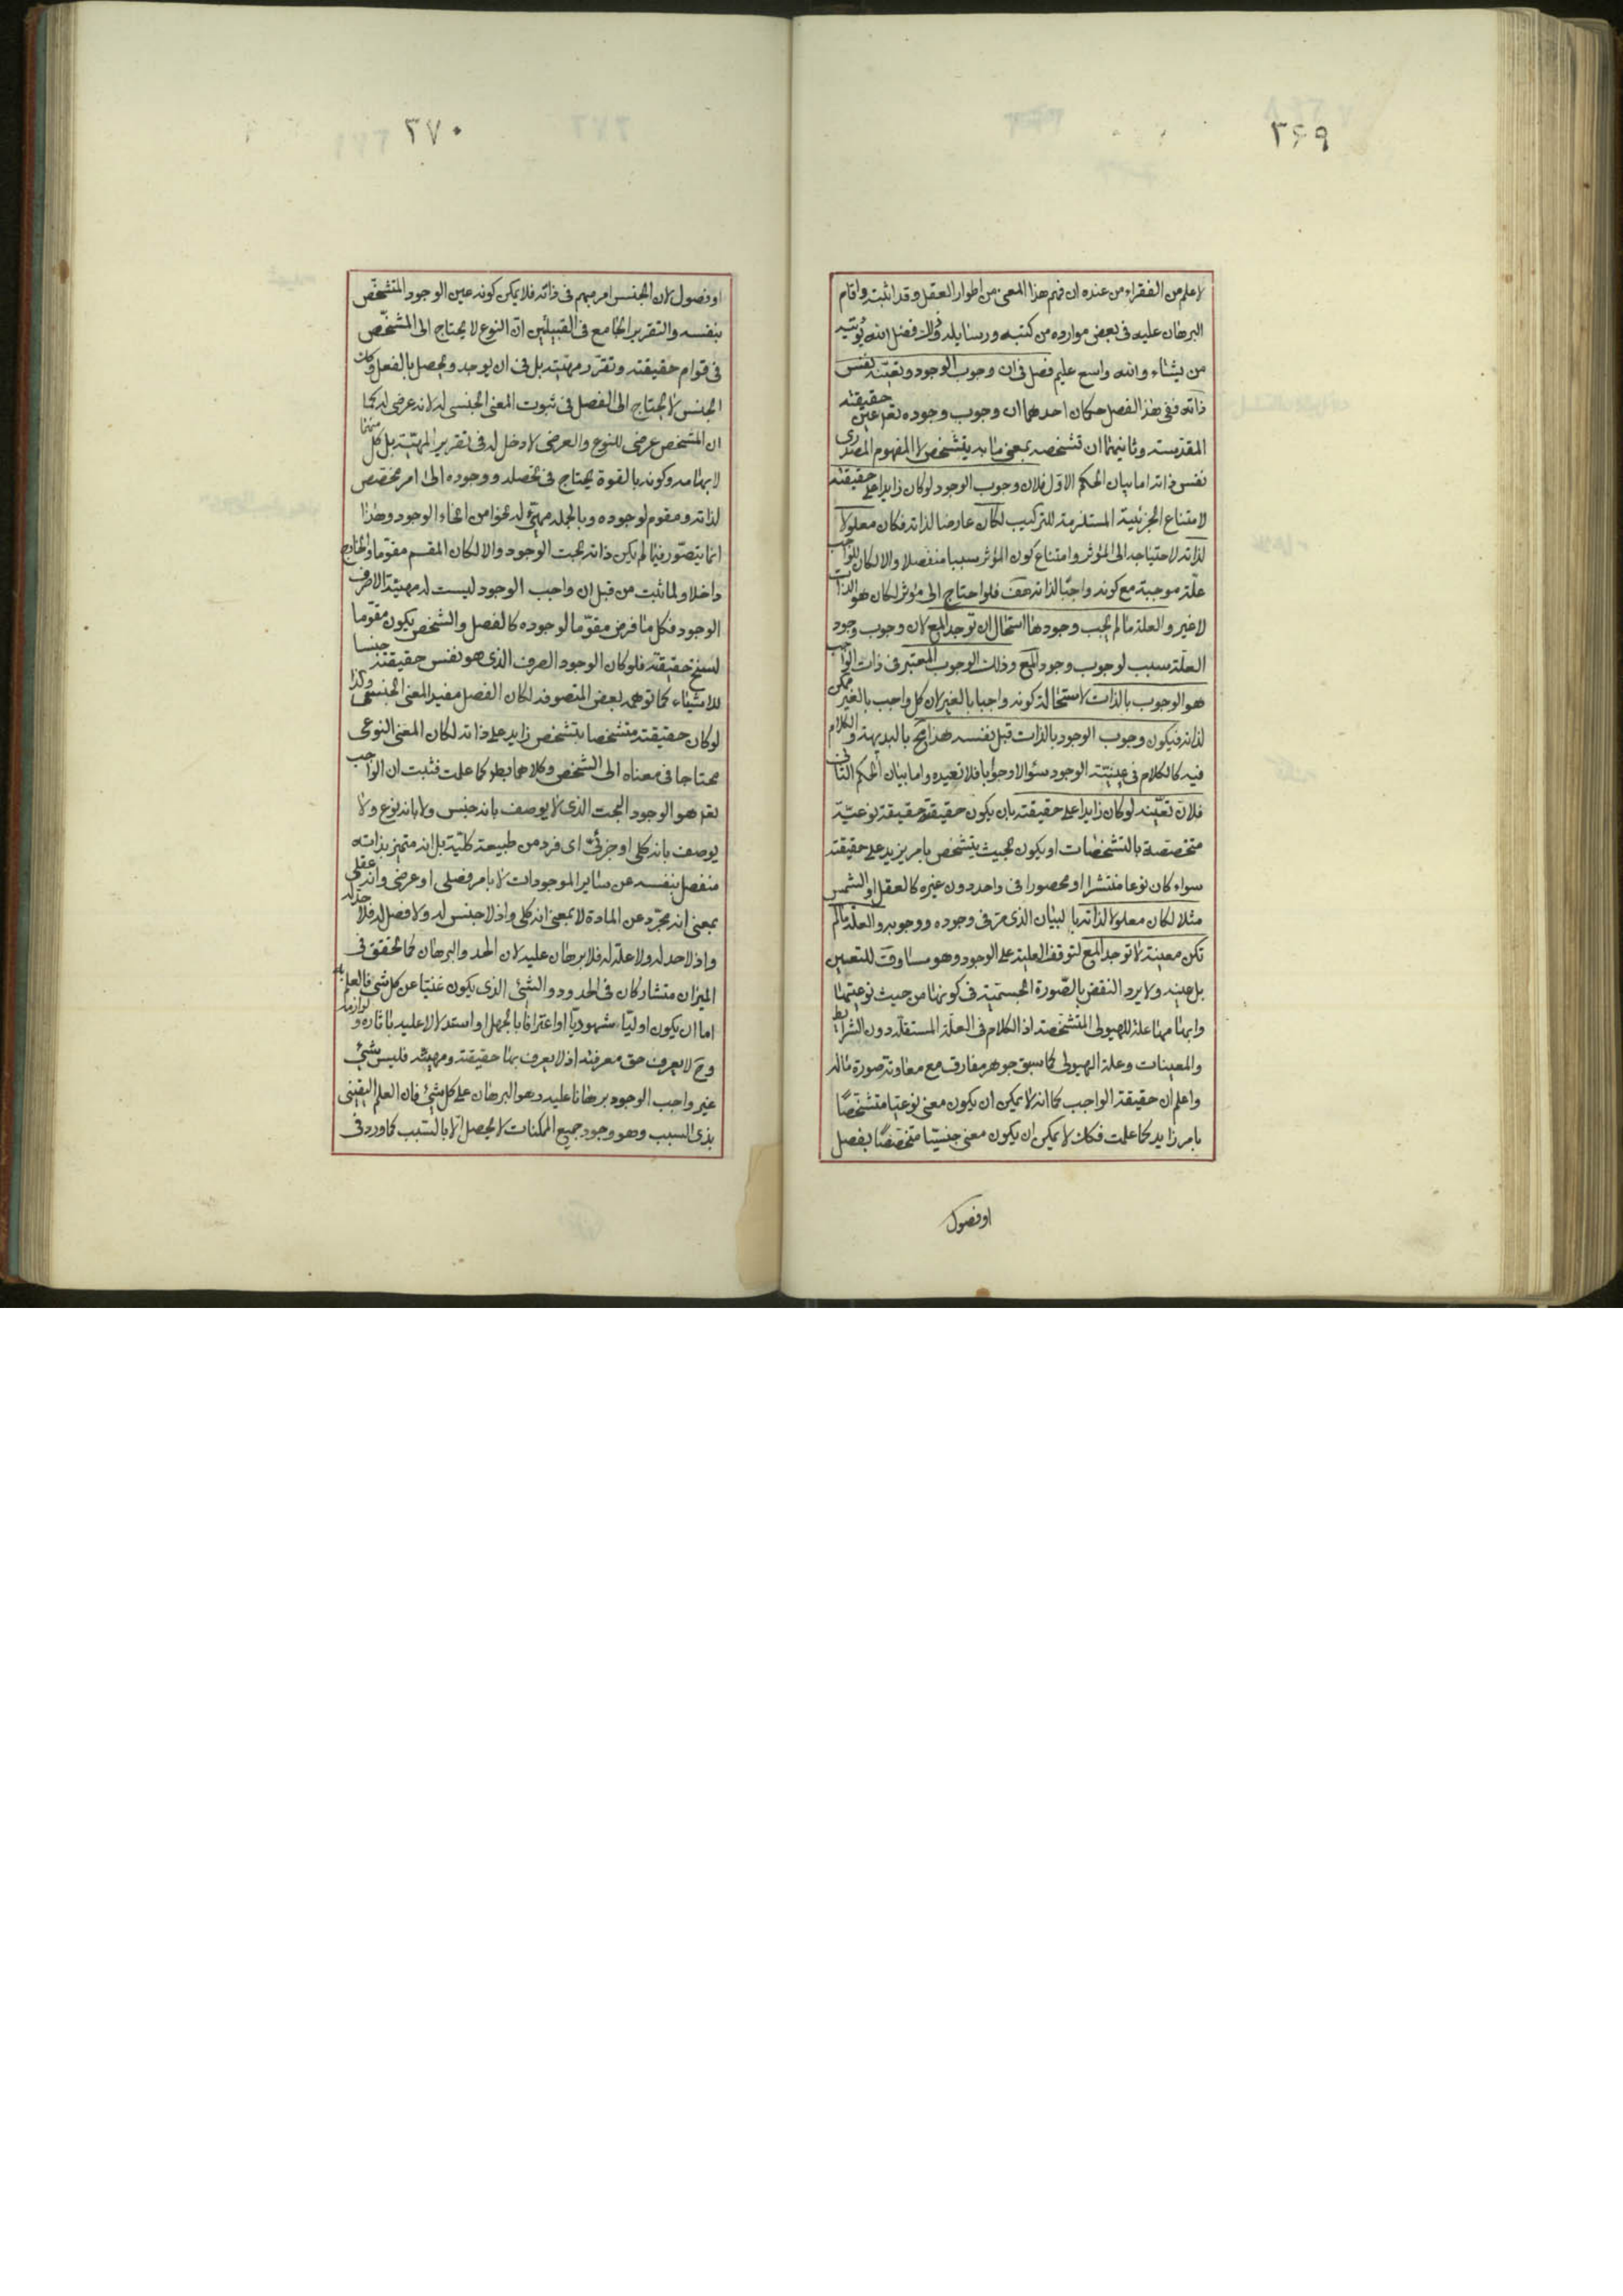 ۳۶۹
لاعلم من الفقراء من عنده ان فهم هذا المعنى من اطوار العقل وقد اثبته واقام
البرهان عليه فى بعض موارده من كتبه ورسايله وذلك فضل الله يؤتيه
من يشاء والله واسع عليم فصل فى ان وجوب الوجود وتعينه نفس
ذاته ففى هذا الفصل حكمان احدهما ان وجوب وجوده تعم عين حقيقته
المقدسته وثانيهما ان تشخصه بمعنى ما به يتشخص لا المفهوم المصدرى
نفس ذاته اما بيان الحكم الاول فلان وجوب الوجود لو كان زايدا على حقيقته
لامتناع الجزئية المستلزمة للتركيب لكان عارضا لذاته فكان معلولا
لذاته لاحتياجه الى المؤثر وامتناع كون المؤثر سببا منفصلا والا لكان للواجب
علة موجبة مع كونه واجبا لذاته هف فلو احتاج الى مؤثر لكان هو الذات
لا غير والعلة ما لم يجب وجودها استحال ان توجد المع لان وجوب وجود
العلة سبب لوجوب وجود المع وذلك الوجوب المعتبر فى ذات الواجب
هو الوجوب بالذات لاستحالة كونه واجبا بالغير لان كل واجب بالغير ممكن
لذاته فيكون وجوب الوجود بالذات قبل نفسه هذا مح بالبديهة والكلام
فيه كالكلام فى عينيته الوجود سئوالا وجوابا فلا نعيده واما بيان الحكم الثانى
فلان تعينه لو كان زايدا على حقيقته بان يكون حقيقته حقيقة نوعية
متخصصة بالتشخصات او يكون بحيث يتشخص بامر يزيد على حقيقته
سواء كان نوعا منتشرا او محصورا فى واحد دون غيره كالعقل او الشمس
مثلا لكان معلولا لذاته بالبيان الذى مر فى وجوده ووجوبه والعلة ما لم
تكن معينة لا توجد المع لتوقف العلية على الوجود وهو مساوق للتعين
بل عينه ولا يرد النقض بالصورة الجسمية فى كونها من حيث نوعيتها
وابهامها علة للهيولى المتشخصة اذ الكلام فى العلة المستقلة دون الشرايط
والمعينات وعلة الهيولى كما سبق جوهر مفارق مع معاونة صورة ما له
واعلم ان حقيقة الواجب كما انه لا يمكن ان يكون معنى نوعيا متشخصا
بامر زايد كما علمت فكك لا يمكن ان يكون معنى جنسيا متخصصا بفصل
او فصول
۳۷۰
او فصول لان الجنس امر مبهم فى ذاته فلا يمكن كونه عين الوجود المتشخص
بنفسه والتقرير الجامع فى القبيلين ان النوع لا يحتاج الى المشخص
فى قوام حقيقته وتقرر مهيته بل فى ان يوجد ويحصل بالفعل وكك
الجنس لا يحتاج الى الفصل فى ثبوت المعنى الجنسى له لانه عرضى له كما
ان المشخص عرضى للنوع والعرضى لا دخل له فى تقرير المهية بل كل منهما
لابهامه وكونه بالقوة يحتاج فى تحصله ووجوده الى امر مخصص
لذاته ومقوم لوجوده وبالجملة مهيئ له نحوا من انحاء الوجود وهذا
انما يتصور فيما لم يكن ذاته بحت الوجود والا لكان المقسم مقوما والخارج
داخلا ولما ثبت من قبل ان واجب الوجود ليست له مهية الا صرف
الوجود فكل ما فرض مقوما لوجوده كالفصل والشخص يكون مقوما
لسنخ حقيقته فلو كان الوجود الصرف الذى هو نفس حقيقته جنسا
للاشياء كما توهمه بعض المتصوفه لكان الفصل مفيد المعنى الجنسى وكذا
لو كان حقيقته متشخصا بتشخص زايد على ذاته لكان المعنى النوعى
محتاجا فى معناه الى الشخص وكلاهما بط كما علمت فثبت ان الواجب
تعم هو الوجود البحت الذى لا يوصف بانه جنس ولا بانه نوع ولا
يوصف بانه كلى او جزئى اى فرد من طبيعة كلية بل انه متميز بذاته
منفصل بنفسه عن ساير الموجودات لا بامر فصلى او عرضى وانه عقلى
بمعنى انه مجرد عن المادة لا بمعنى انه كلى واذ لا جنس له ولا فصل له فلا حد له
واذ لا حد له ولا علة له فلا برهان عليه لان الحد والبرهان كما تحقق فى
الميزان متشاركان فى الحدود والشئ الذى يكون غنيا عن كل شئ فالعلم به
اما ان يكون اوليا شهوديا او اعترافا بالجهل او استدلالا عليه باثاره ولوازمه
وح لا يعرف حق معرفته اذ لا يعرف بها حقيقته ومهيته فليس شئ
غير واجب الوجود برهانا عليه وهو البرهان على كل شئ فان العلم اليقينى
بذى السبب وهو وجود جميع الممكنات لا يحصل الا بالسبب كما ورد فى